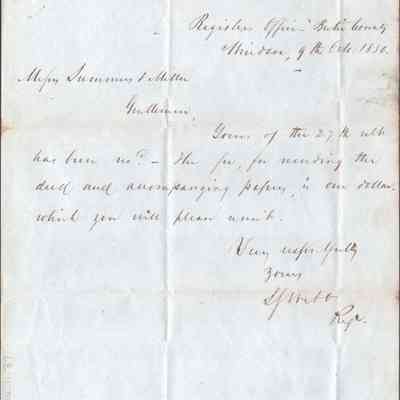 Register Office Bertie County
Windsor, 9th Oct. 1850.
Messrs Summers & Miller
Gentlemen,
Yours of the 27th ult
has been recd. – The fee, for recording the
deed and accompanying papers, is one dollar.
which you will please remit.
Very respectfully
Yours
S J Webb
Regr.